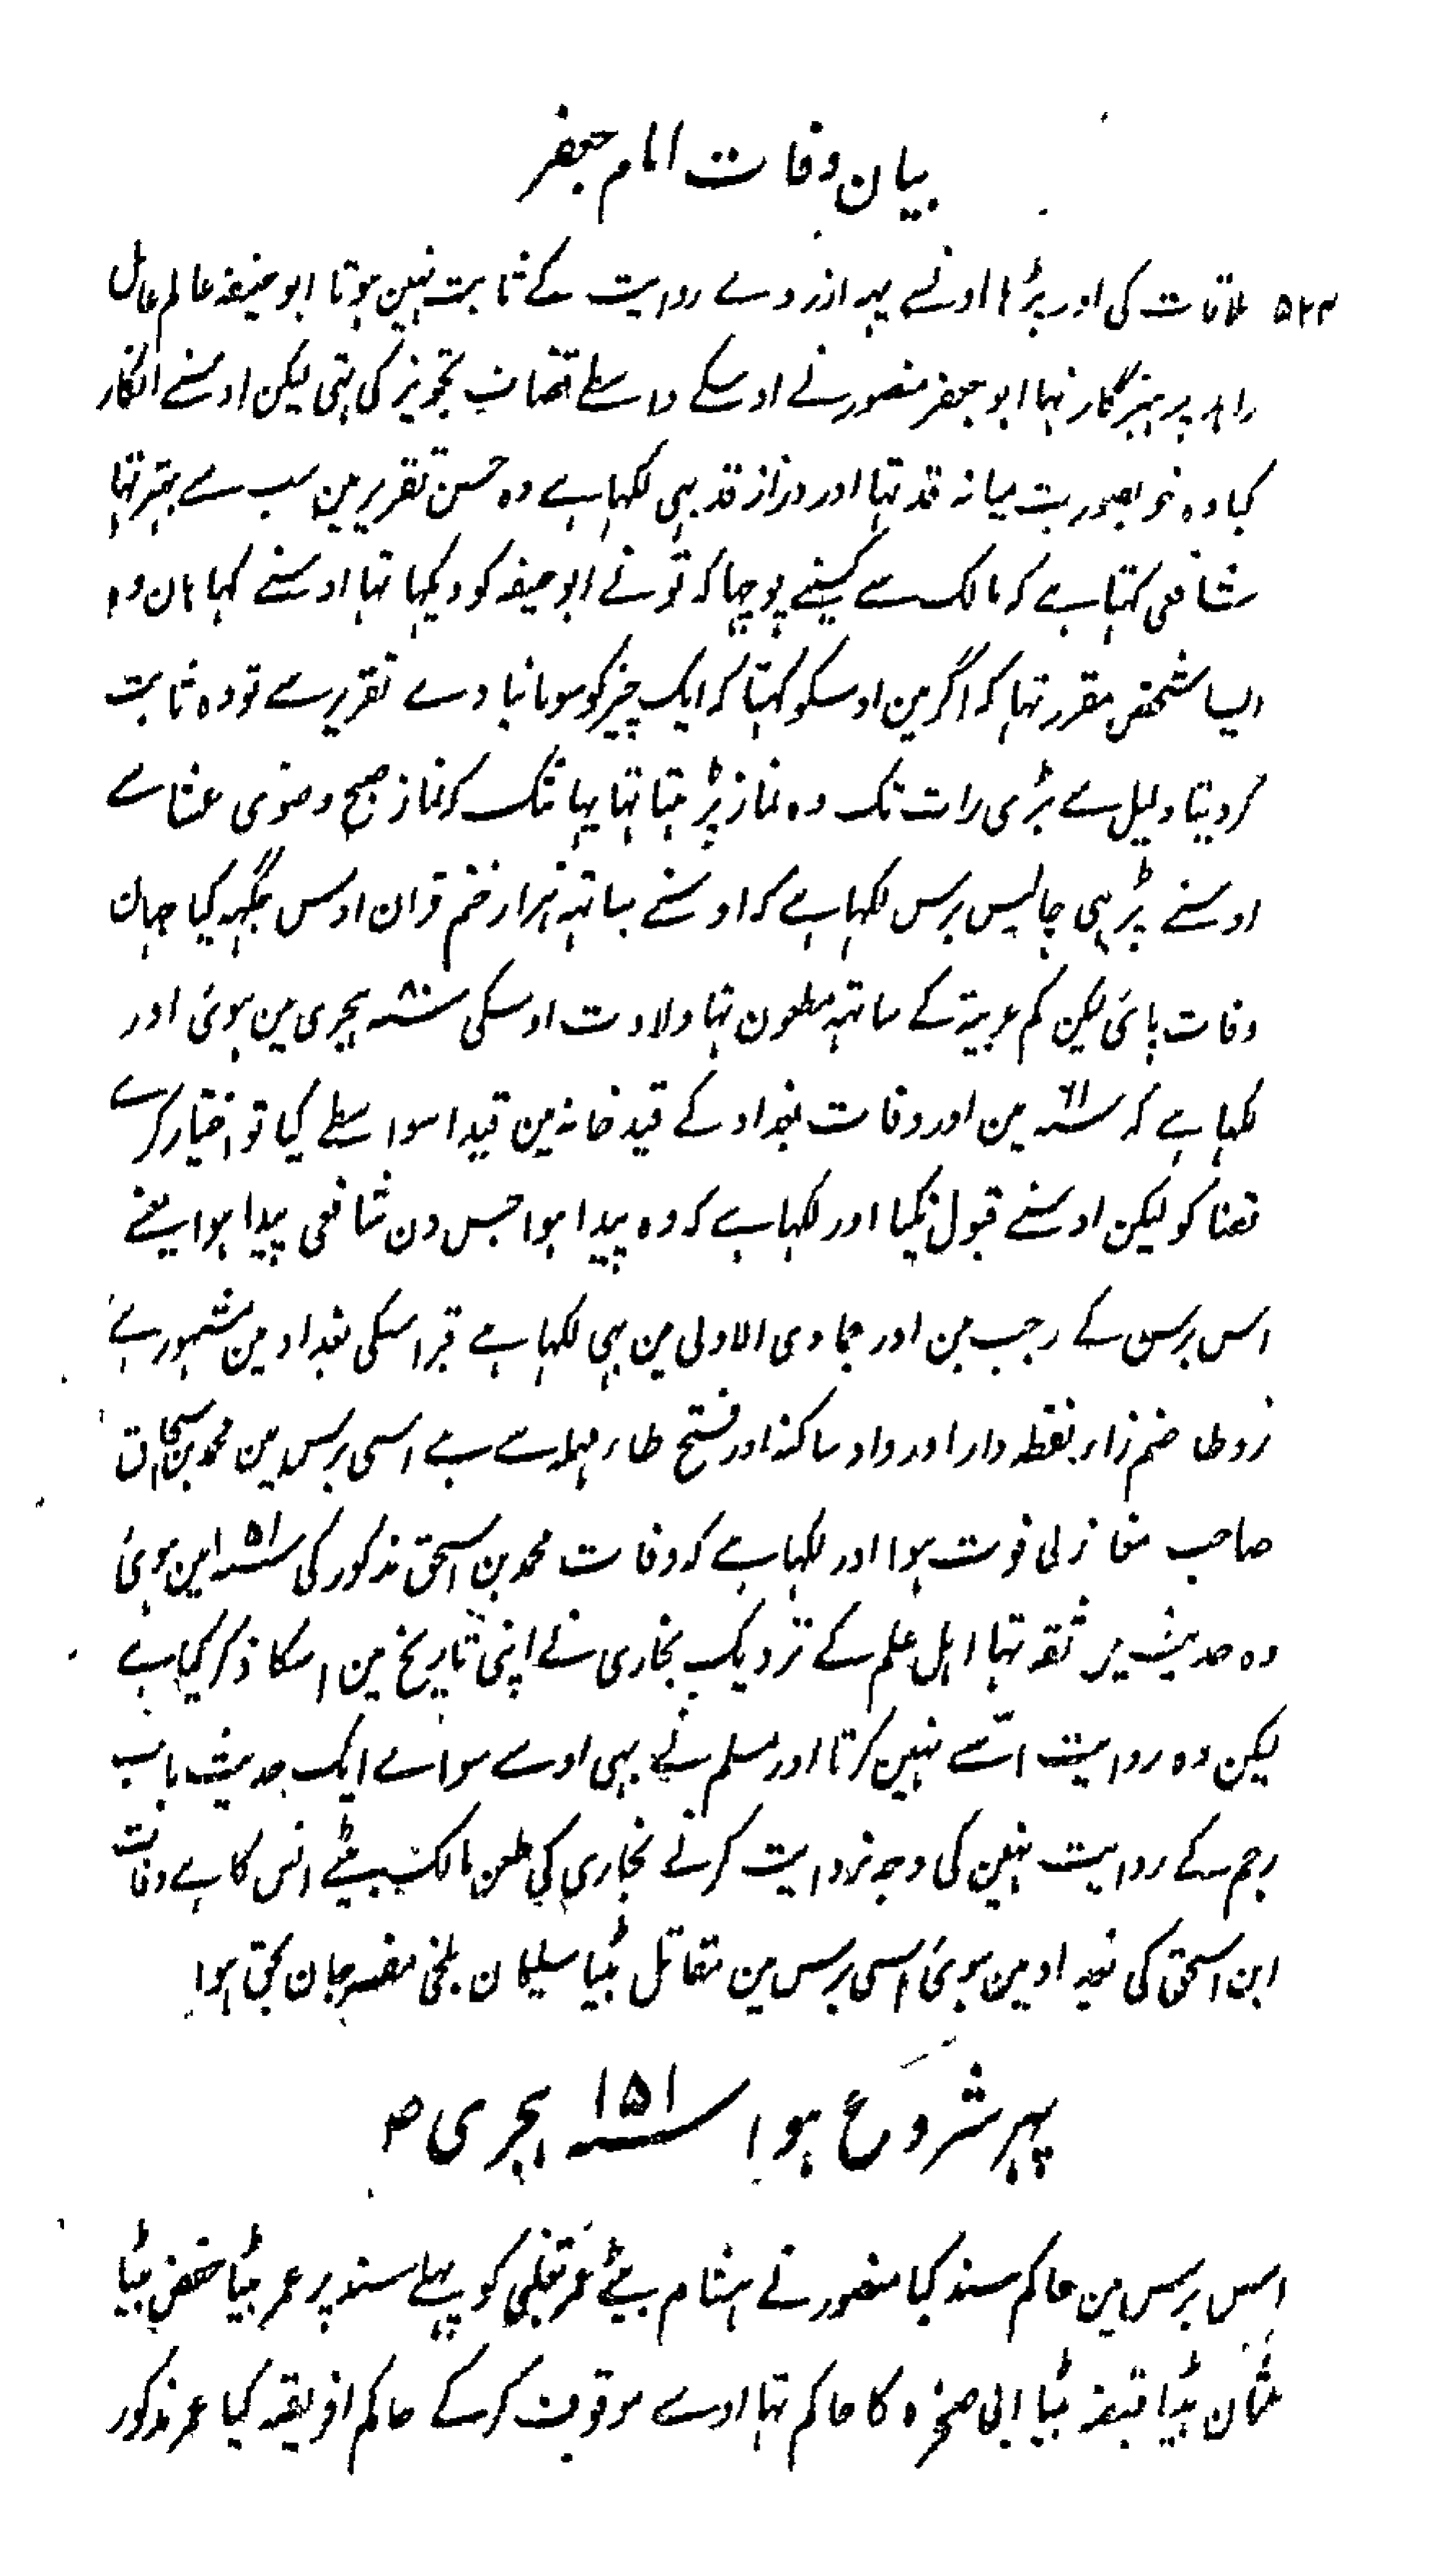 بیان وفات امام جعفر
۵۲۴ ملاقات کی اور پڑہا اونسے یہہ ازروے روایت کے ثابت نہین ہوتا ابو حنیفہ عالم عامل
زاہد پرہیزگار تہا ابو جعفر منصور نے اوسکے واسطے قضات تجویز کی تہی لیکن اوسنے انکار
کیا وہ خوبصورت میانہ قد تہا اور دراز قد بہی لکہا ہے وہ حسن تقریر مین سب سے بہتر تہا
شافعی کہتا ہے کہ مالک سے کسینے پوچہا کہ تونے ابو حنیفہ کو دیکہا تہا اوسنے کہا ہان وہ
ایسا شخص مقرر تہا کہ اگر مین اوسکو کہتا کہ ایک چیز کو سونا بنا دے تقریر سے تو وہ ثابت
کر دیتا دلیل سے بڑی رات تک وہ نماز پڑہتا تہا یہانتک کہ نماز صبح وضوی عشا سے
اوسنے پڑہی چالیس برس لکہا ہے کہ اوسنے سات ہزار ختم قران اوس جگہہ کیا جہان
وفات پائی لیکن کم عربیۃ کے ساتہہ مطعون تہا ولادت اوسکی سنہ ۸۰ ہجری مین ہوئی اور
لکہا ہے کہ سنہ ۶۱ مین اور وفات بغداد کے قید خانہ مین قید اسواسطے کیا تو اختیار کرے
قضا کو لیکن اوسنے قبول نکیا اور لکہا ہے کہ وہ پیدا ہوا جس دن شافعی پیدا ہوا یعنے
اس برس کے رجب مین اور جمادی الاولی مین بہی لکہا ہے قبر اسکی بغداد مین مشہور ہے
زوطا ضم زاء نقطہ دار اور واو ساکنہ اور فتح طاء مہملہ سے ہے اسی برس مین محمد بن اسحاق
صاحب مغازی فوت ہوا اور لکہا ہے کہ وفات محمد بن اسحق مذکور کی سنہ ۱۵۱ مین ہوئی
وہ حدیث میں ثقہ تہا اہل علم کے نزدیک بخاری نے اپنی تاریخ مین اسکا ذکر کیا ہے
لیکن وہ روایت اسّے نہین کرتا اور مسلم نے بہی اوسے سواے ایک حدیث باب
رجم کے روایت نہین کی وجہ نروایت کرنے بخاری کی طعن مالک بیٹے انس کا ہے وفات
ابن اسحق کی بغداد مین ہوئی اسی برس مین مقاتل بیٹا سلیمان بلخی مفسر جان بحق ہوا
پہر شروع ہوا سنہ ۱۵۱ ہجری
اس برس مین حاکم سند کیا منصور نے ہشام بیٹے عمر تغلبی کو پہلے سند پر عمر بیٹا حفص بیٹا
عثمان بیٹا قبیصہ بیٹا ابی صفرہ کا حاکم تہا اوسے موقوف کرکے حاکم افریقہ کیا عمر مذکور